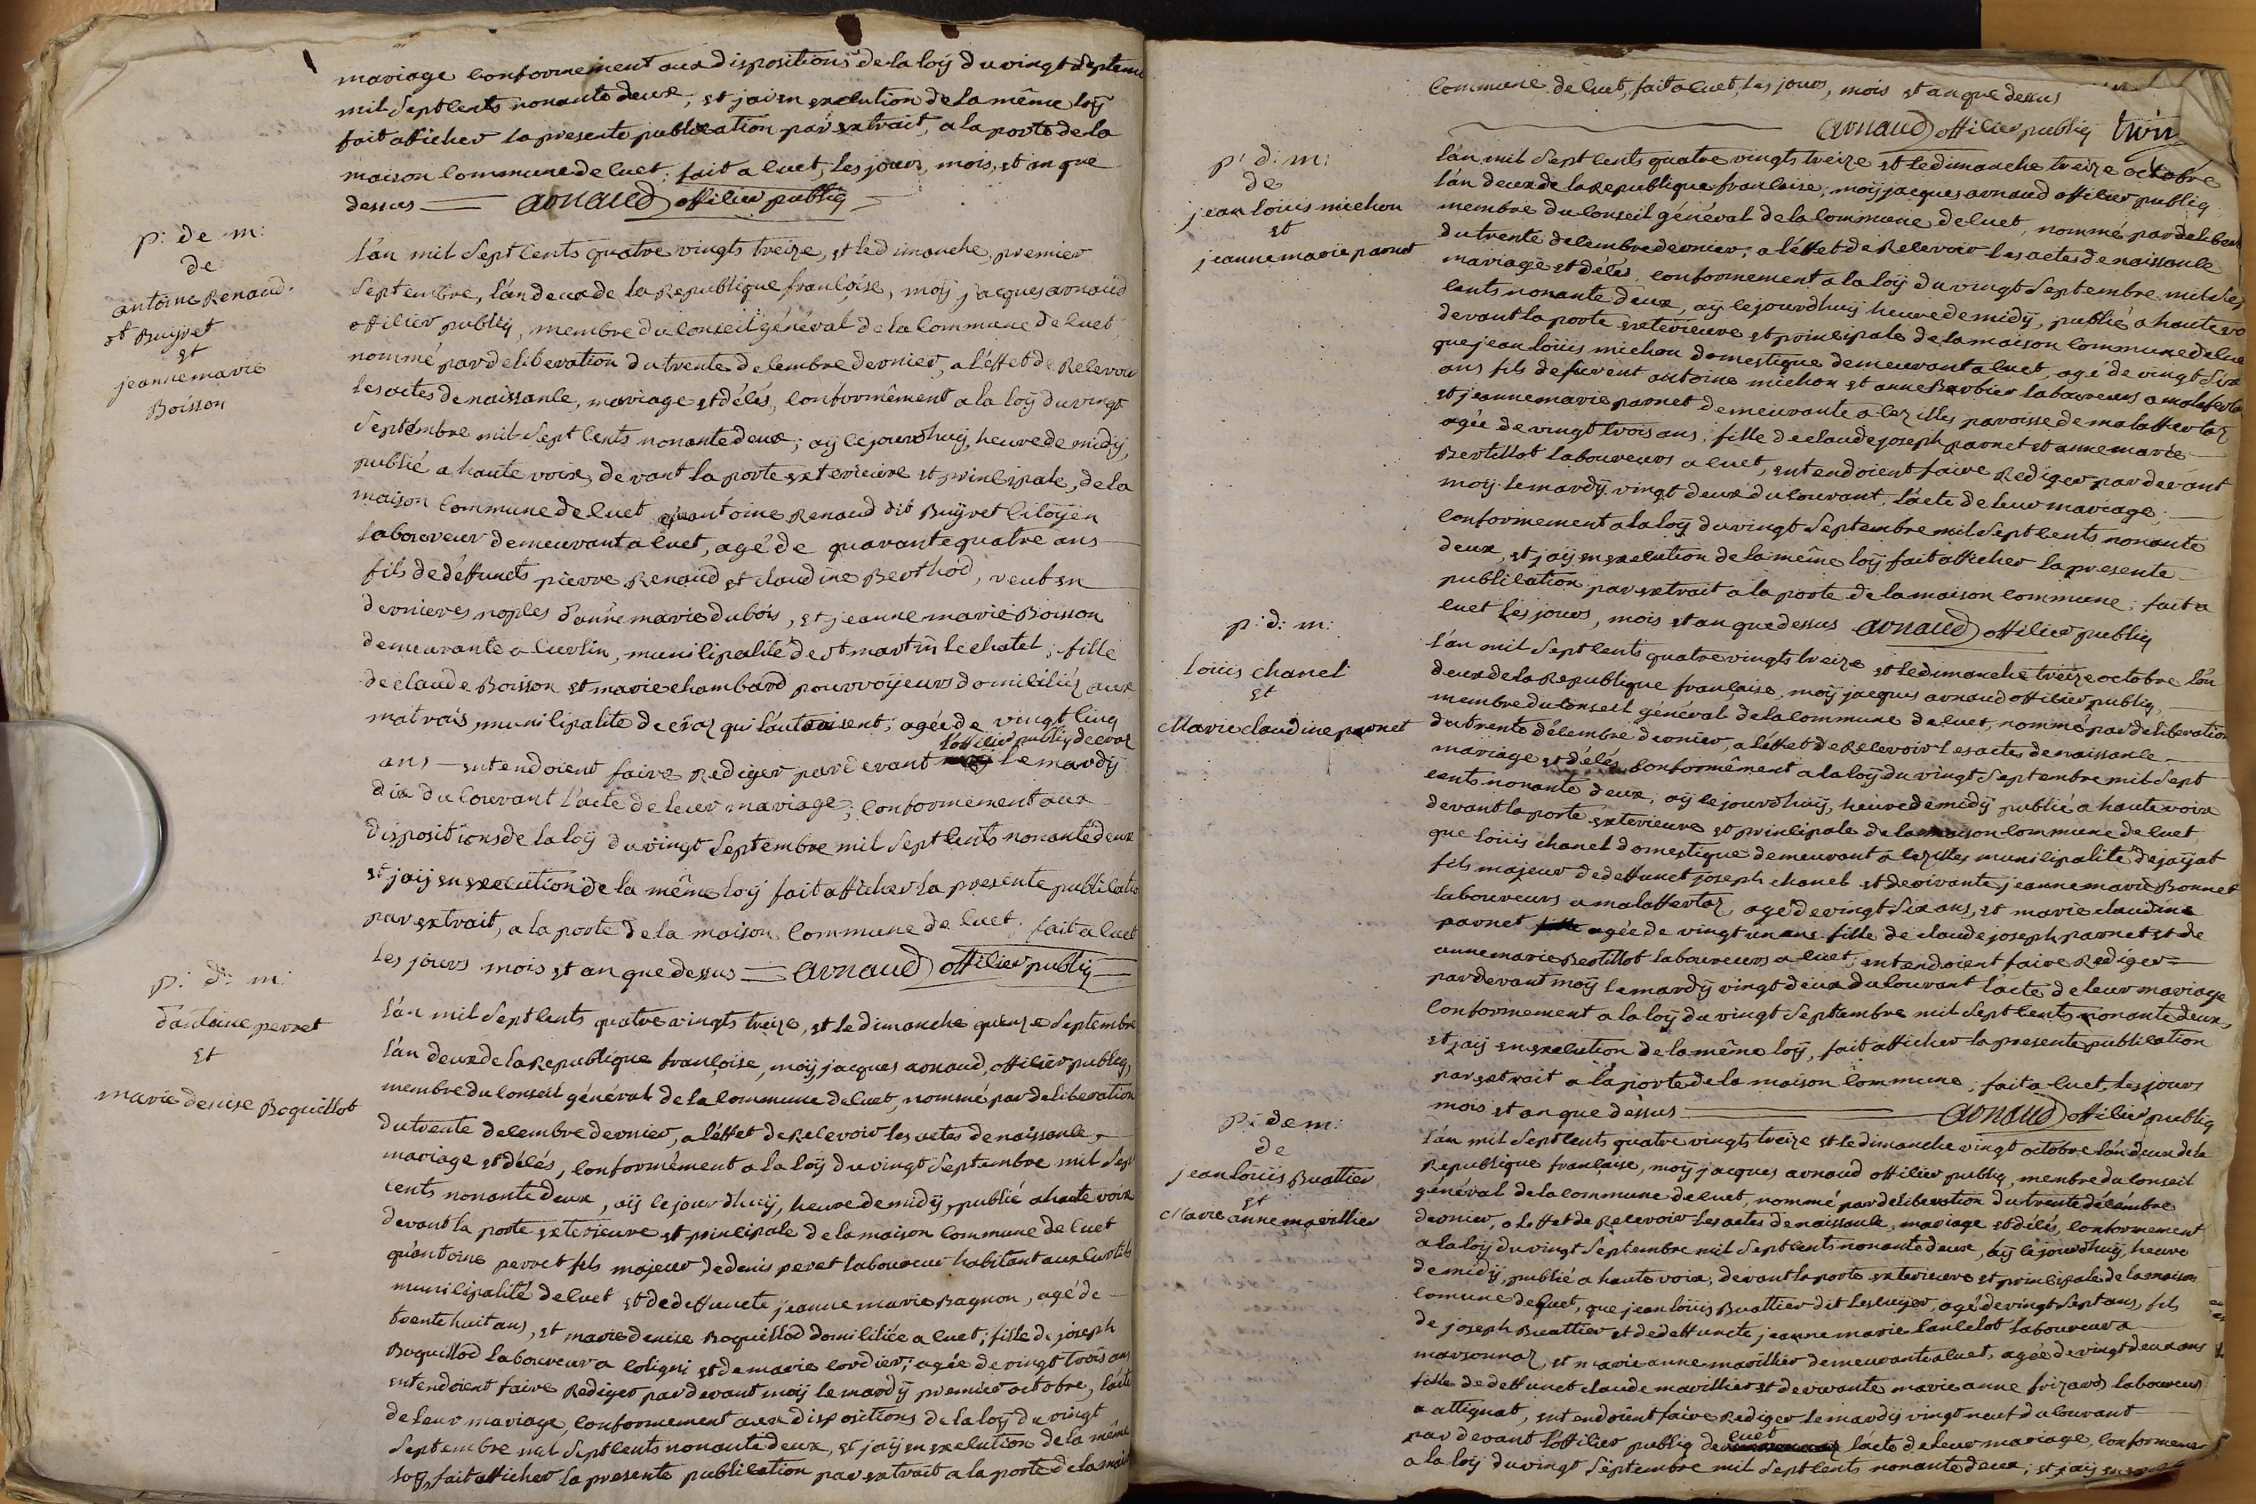 mariage conformement aux dispositions de la loÿ du vingt septem
mil sept cents nonante deux, et jai en execution de la même loÿ
fait afficher la presente publication par extrait, a la porte de la
maison commune de cuet; fait a cuet, les jours, mois, et an que
dessus arnaud officier publiq
p: de m:
de
antoine Renaud
dt Buÿret
et
jeanne marie
Boisson
L'an mil sept cents quatre vingts treize, et le dimanche premier
septembre, l'an deux de la Republique françoise, moÿ jacques arnaud
officier publiq, membre du conseil général de la commune de cuet
nommé par deliberation du trente decembre dernier, a l'effet de Recevoir
les actes de naissance, mariage et décés, conformément a la loÿ du vingt
septembre mil sept cents nonante deux; aÿ cejourdhuÿ, heure de midÿ,
publié a haute voix, devant la porte exterieure et principale, de la
maison commune de cuet qu'antoine Renaud dit Buÿret citoÿen
laboureur demeurant a cuet, agé de quarante quatre ans
fils de déffuncts pierre Renaud et claudine Berthod, veuf en
dernieres nopces d'anne marie dubois, et jeanne marie Boisson
demeurante a curtin, municipalité de st martin le chatel; fille
de claude Boisson et marie chambard pourvoÿeurs domiciliés aux
matrais, municipalite de craz qui l'autorisent; agée de vingt cinq
l'officier publiq de craz
ans entendoient faire Rediger pardevant le mardÿ
dix du courant l'acte de leur mariage; conformement aux
dispositions de la loÿ du vingt septembre mil sept cents nonante deux
et jaÿ en execution de la même loÿ fait afficher la presente publicatio
par extrait, a la porte de la maison commune de cuet; fait a cuet
les jours mois et an que dessus arnaud officier publiq
p: d: m:
d'antoine perret
et
marie denise Boquillot
L'an mil sept cents quatre vingts treize, et le dimanche quinze septembre
l'an deux de la Republique françoise, moÿ jacques arnaud, officier publiq,
membre du conseil général de la commune de cuet, nommé par deliberation
du trente decembre dernier, a l'effet de Recevoir les actes de naissance,
mariage et décés, conformément a la loÿ du vingt septembre mil sept
cents nonante deux, aÿ cejourdhuÿ, heure de midÿ, publié a haute voix
devant la porte exterieure et principale de la maison commune de cuet
qu'antoine perret fils majeur de denis peret laboureur habitant aux curtils
municipalité de cuet et de deffuncte jeanne marie Bagnon, agé de
trente huit ans, et marie denise Boquillod domiciliée a cuet; fille de joseph
Boquillod laboureur a coligni et de marie cordier; agée de vingt trois ans
entendoient faire Rediger pardevant moÿ le mardÿ premier octobre, l'acte
de leur mariage, conformement aux dispositions de la loÿ du vingt
septembre mil sept cents nonante deux, et jaÿ en execution de la même
loÿ, fait afficher la presente publication par extrait a la porte de la mais
commune de cuet, fait a cuet, les jours, mois et an que dessus
arnaud officier publiq
p: d: m:
de
jean loüis michon
et
jeanne marie parnet
L'an mil sept cents quatre vingts treize et le dimanche treize octobre
l'an deux de la Republique francaise, moÿ jacques arnaud officier publiq
membre du conseil général de la commune de cuet, nommé par deliberat
du trente decembre dernier, a l'effet de Recevoir les actes de naissance
mariage et décés conformement a la loÿ du vingt septembre mil sept
cents nonante deux, aÿ cejourdhuÿ heure de midÿ, publié a haute vo
devant la porte exterieure et principale de la maison commune de cue
que jean loüis michon domestique demeurant a cuet, agé de vingt six
ans fils de furent antoine michon et anne Barbier laboureurs a malafertaz
et jeanne marie parnet demeurante a lezilles paroisse de malaffertaz
agée de vingt trois ans, fille de claude joseph parnet et anne marie
Bertillot laboureurs a cuet, entendoient faire Rediger par devant
moÿ le mardÿ vingt deux du courant, l'acte de leur mariage,
conformement a la loÿ du vingt septembre mil sept cents nonante
deux, et jaÿ en execution de la même loÿ fait afficher la presente
publication par extrait a la porte de la maison commune; fait a
cuet les jours, mois et an que dessus arnaud officier publiq
p: d: m:
loüis chanel
et
Marie claudine parnet
L'an mil sept cents quatre vingts treize et le dimanche treize octobre l'an
deux de la Republique française, moÿ jacques arnaud officier publiq,
membre du conseil général de la commune de cuet, nommé par deliberation
du trente décembre dernier, a l'effet de Recevoir les actes de naissance
mariage et décés conformément a la loÿ du vingt septembre mil sept
cents nonante deux; aÿ cejourdhuÿ, heure de midÿ publié a haute voix
devant la porte exterieure et principale de la maison commune de cuet
que loüis chanel domestique demeurant a lezilles municipalité de jaÿat
fils majeur de deffunct joseph chanel et de vivante jeanne marie Bonnet
laboureurs a malaffertaz, agé de vingt six ans, et marie claudine
parnet agée de vingt un ans fille de claude joseph parnet et de
anne marie Bertillot laboureurs a cuet; entendoient faire Rediger
pardevant moÿ le mardÿ vingt deux du courant l'acte de leur mariage
conformement a la loÿ du vingt septembre mil sept cents nonante deux,
et jaÿ en execution de la même loÿ, fait afficher la presente publication
par extrait a la porte de la maison commune, fait a cuet, les jours
mois et an que dessus arnaud officier publiq
p: de m:
de
jean loüis Buattier
et
Marie anne marillier
L'an mil sept cents quatre vingts treize et le dimanche vingt octobre l'an deux de la
Republique française, moÿ jacques arnaud officier publiq, membre du conseil
général de la commune de cuet, nommé par deliberation du trente décembre
dernier, a l'effet de Recevoir les actes de naissance, mariage et décés, conformement
a la loÿ du vingt septembre mil sept cents nonante deux, aÿ cejourdhuÿ, heure
de midÿ, publié a haute voix, devant la porte exterieure et principale de la maison
comune de cuet, que jean loüis Buattier dit lescuÿer, agé de vingt sept ans, fils
de joseph Buattier et de deffuncte jeanne marie lancelot laboureurs a
marsonnaz, et marie anne marillier demeurante a cuet, agée de vingt deux ans
fille de deffunct claude marillier et de vivante marie anne frizard laboureurs
a attignat, entendoient faire Rediger le mardÿ vingt neuf du courant
cuet
par devant l'officier publiq de l'acte de leur mariage, conformeme
a la loÿ du vingt septembre mil sept cents nonante deux; et jaÿ en